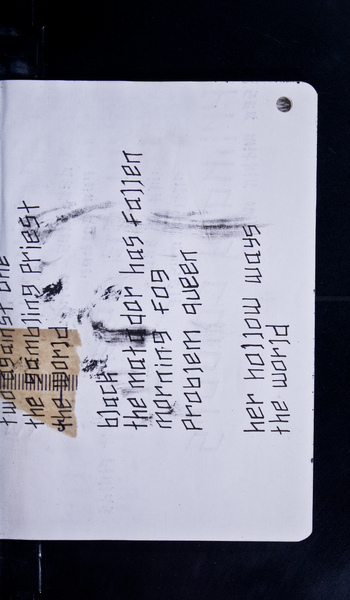 two against one
the gambling priest
the world
black
the matador has fallen
morning fog
problem queen
her hollow ways
the world